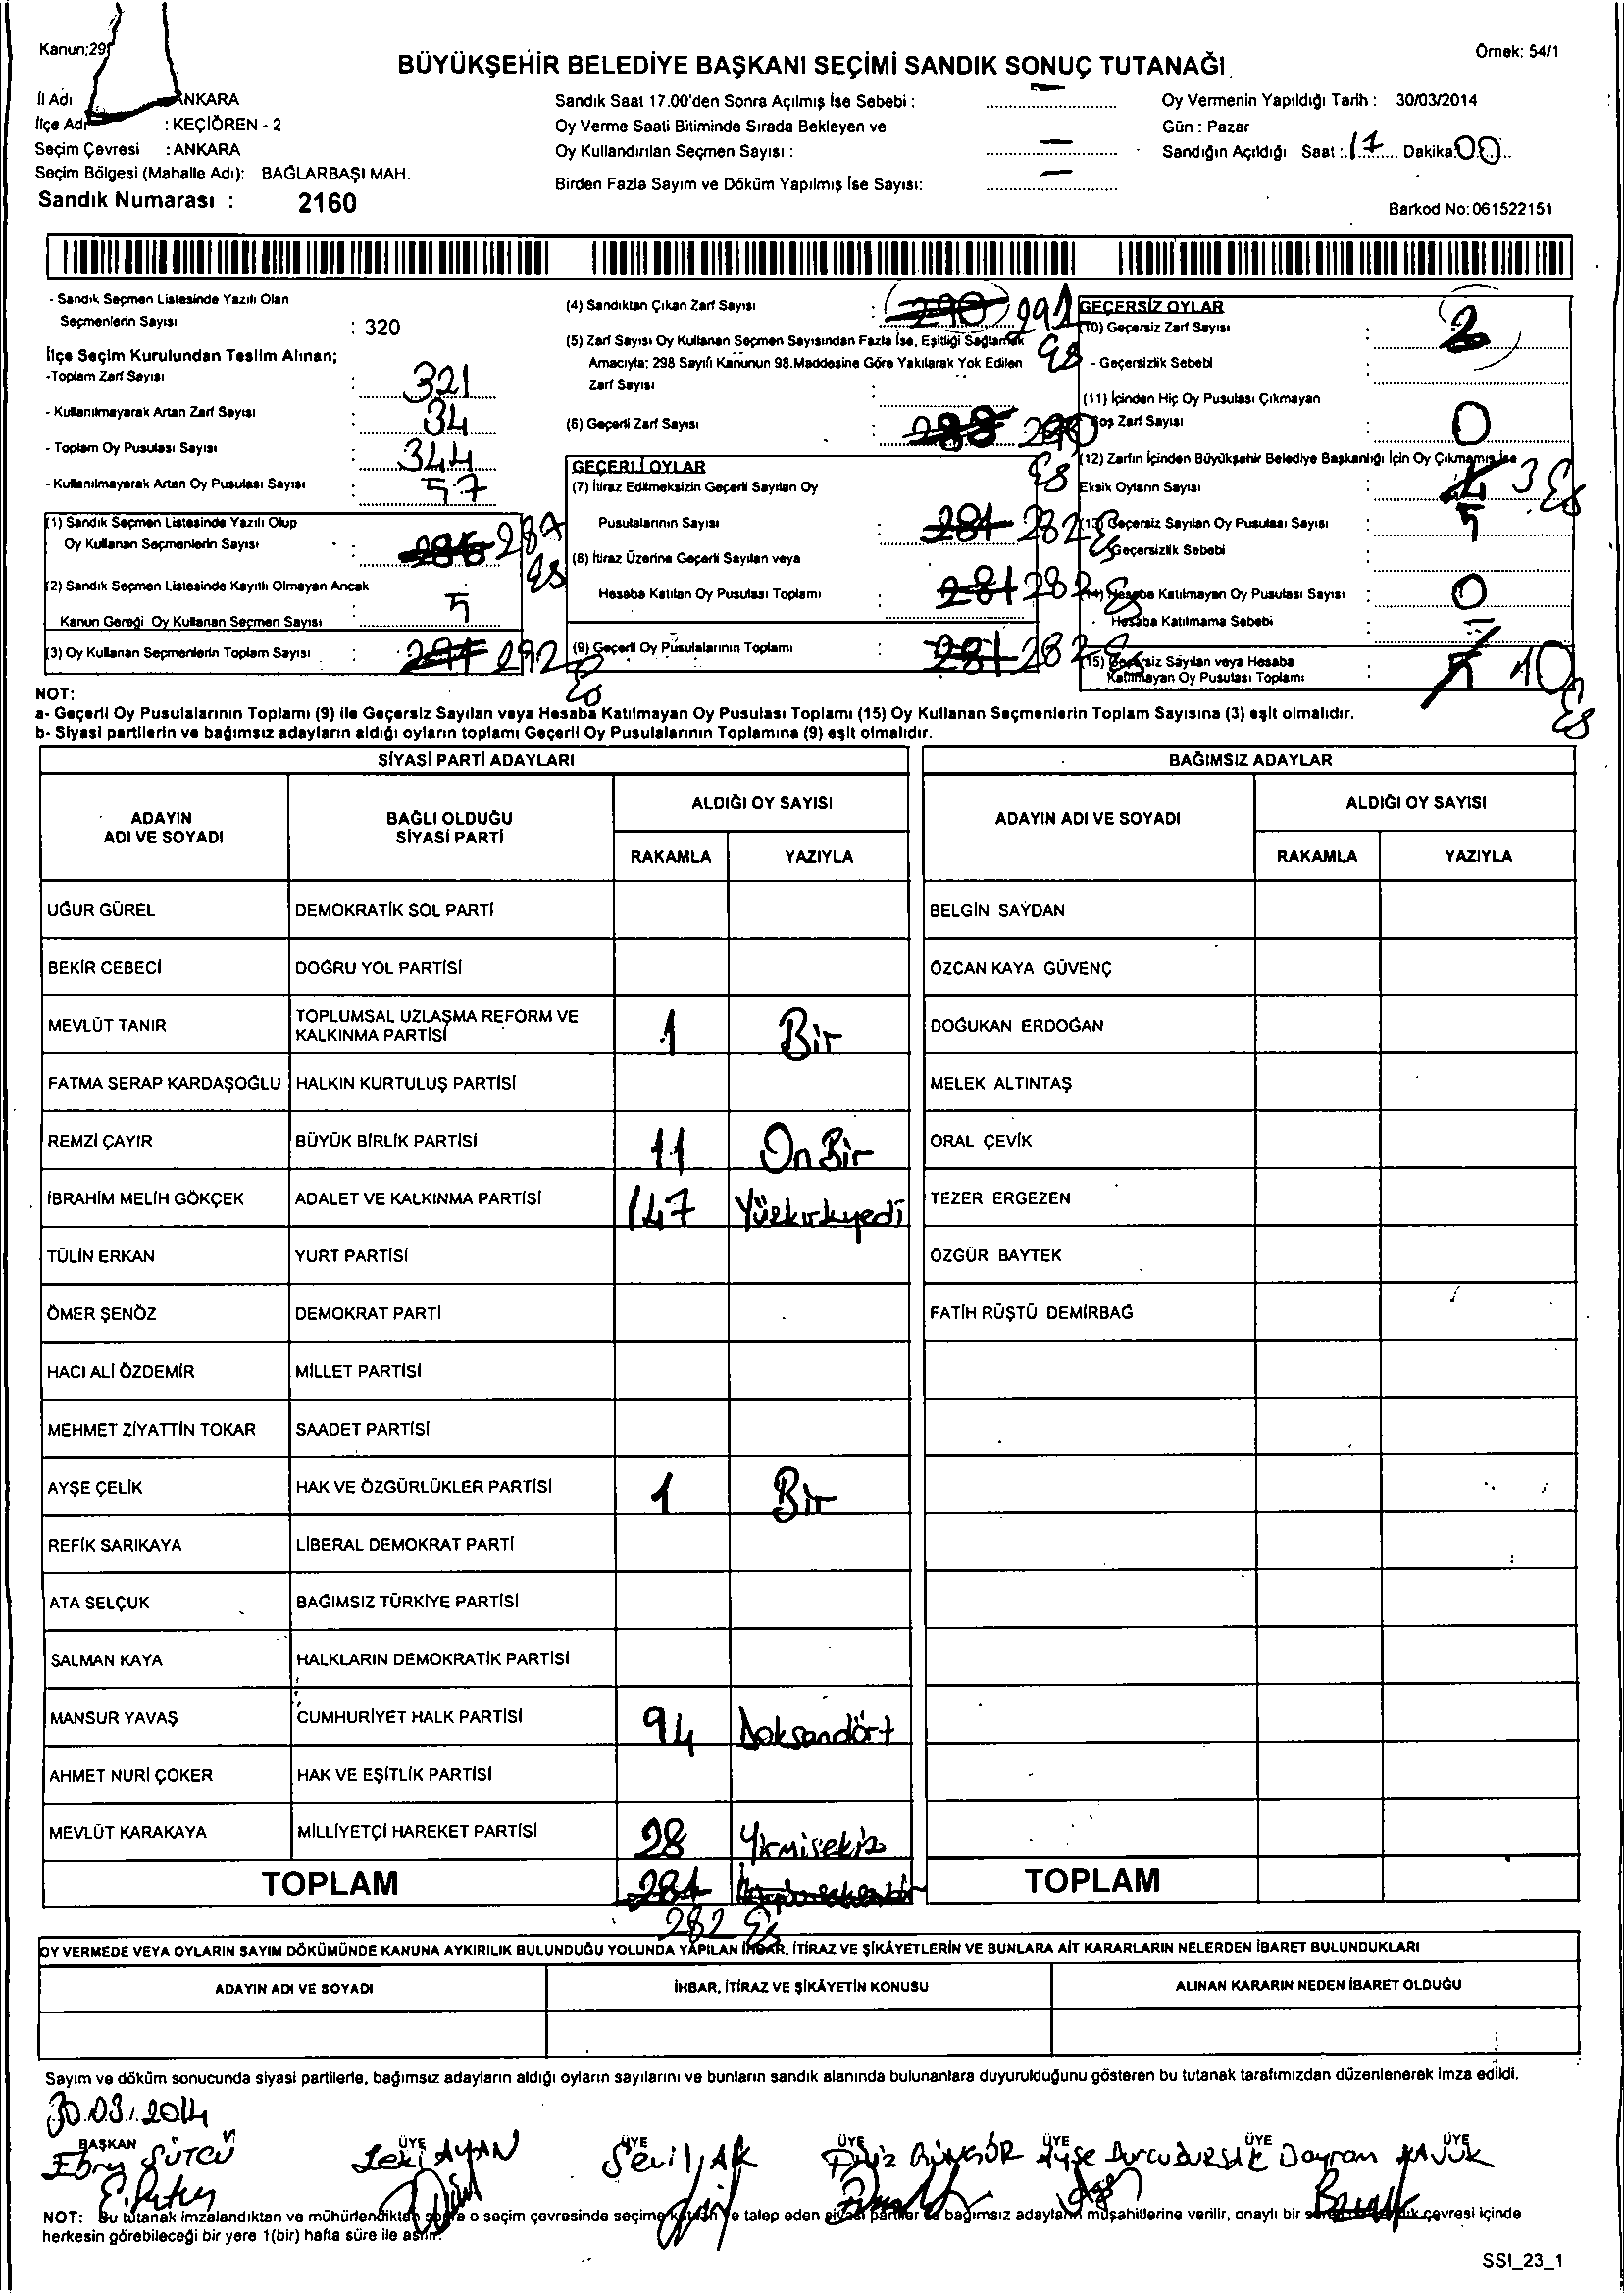 Kanun:29
BÜYÜKŞEHİR BELEDİYE BAŞKANI SEÇİMİ SANDIK SONUÇ TUTANAĞI
Örnek: 54/1
İl Adı ANKARA
İlçe Adı : KEÇİÖREN - 2
Seçim Çevresi : ANKARA
Seçim Bölgesi (Mahalle Adı): BAĞLARBAŞI MAH.
Sandık Numarası : 2160
Sandık Saat 17.00'den Sonra Açılmış İse Sebebi : —
Oy Verme Saati Bitiminde Sırada Bekleyen ve
Oy Kullandırılan Seçmen Sayısı : —
Birden Fazla Sayım ve Döküm Yapılmış İse Sayısı: —
Oy Vermenin Yapıldığı Tarih : 30/03/2014
Gün : Pazar
Sandığın Açıldığı Saat : 17 Dakika: 00
Barkod No:061522151
- Sandık Seçmen Listesinde Yazılı Olan
Seçmenlerin Sayısı : 320
İlçe Seçim Kurulundan Teslim Alınan;
-Toplam Zarf Sayısı : 321
- Kullanılmayarak Artan Zarf Sayısı : 34
- Toplam Oy Pusulası Sayısı : 344
- Kullanılmayarak Artan Oy Pusulası Sayısı : 57
(1) Sandık Seçmen Listesinde Yazılı Olup
Oy Kullanan Seçmenlerin Sayısı : 286 287 Es
(2) Sandık Seçmen Listesinde Kayıtlı Olmayan Ancak
Kanun Gereği Oy Kullanan Seçmen Sayısı : 5
(3) Oy Kullanan Seçmenlerin Toplam Sayısı : 291 292 Es
(4) Sandıktan Çıkan Zarf Sayısı : 290 291 Es
(5) Zarf Sayısı Oy Kullanan Seçmen Sayısından Fazla İse, Eşitliği Sağlamak
Amacıyla; 298 Sayılı Kanunun 98.Maddesine Göre Yakılarak Yok Edilen
Zarf Sayısı :
(6) Geçerli Zarf Sayısı : 288 290 Es
GEÇERLİ OYLAR
(7) İtiraz Edilmeksizin Geçerli Sayılan Oy
Pusulalarının Sayısı : 281 282 Es
(8) İtiraz Üzerine Geçerli Sayılan veya
Hesaba Katılan Oy Pusulası Toplamı : 281 282 Es
(9) Geçerli Oy Pusulalarının Toplamı : 281 282 Es
GEÇERSİZ OYLAR
(10) Geçersiz Zarf Sayısı :
- Geçersizlik Sebebi :
(11) İçinden Hiç Oy Pusulası Çıkmayan
Boş Zarf Sayısı : 0
(12) Zarfın İçinden Büyükşehir Belediye Başkanlığı İçin Oy Çıkmamış İse
Eksik Oyların Sayısı : 4 3 Es
(13) Geçersiz Sayılan Oy Pusulası Sayısı : 5
Geçersizlik Sebebi
(14) Hesaba Katılmayan Oy Pusulası Sayısı : 0
Hesaba Katılmama Sebebi
(15) Geçersiz Sayılan veya Hesaba
Katılmayan Oy Pusulası Toplamı : 10 Es
NOT:
a- Geçerli Oy Pusulalarının Toplamı (9) ile Geçersiz Sayılan veya Hesaba Katılmayan Oy Pusulası Toplamı (15) Oy Kullanan Seçmenlerin Toplam Sayısına (3) eşit olmalıdır.
b- Siyasi partilerin ve bağımsız adayların aldığı oyların toplamı Geçerli Oy Pusulalarının Toplamına (9) eşit olmalıdır.
SİYASİ PARTİ ADAYLARI
BAĞIMSIZ ADAYLAR
ADAYIN ADI VE SOYADI
BAĞLI OLDUĞU SİYASİ PARTİ
ALDIĞI OY SAYISI
RAKAMLA YAZIYLA
ADAYIN ADI VE SOYADI
ALDIĞI OY SAYISI
RAKAMLA YAZIYLA
UĞUR GÜREL DEMOKRATİK SOL PARTİ BELGİN SAYDAN
BEKİR CEBECİ DOĞRU YOL PARTİSİ ÖZCAN KAYA GÜVENÇ
MEVLÜT TANIR TOPLUMSAL UZLAŞMA REFORM VE KALKINMA PARTİSİ 1 Bir DOĞUKAN ERDOĞAN
FATMA SERAP KARDAŞOĞLU HALKIN KURTULUŞ PARTİSİ MELEK ALTINTAŞ
REMZİ ÇAYIR BÜYÜK BİRLİK PARTİSİ 11 On Bir ORAL ÇEVİK
İBRAHİM MELİH GÖKÇEK ADALET VE KALKINMA PARTİSİ 147 Yüzkırkyedi TEZER ERGEZEN
TÜLİN ERKAN YURT PARTİSİ ÖZGÜR BAYTEK
ÖMER ŞENÖZ DEMOKRAT PARTİ FATİH RÜŞTÜ DEMİRBAĞ
HACI ALİ ÖZDEMİR MİLLET PARTİSİ
MEHMET ZİYATTİN TOKAR SAADET PARTİSİ
AYŞE ÇELİK HAK VE ÖZGÜRLÜKLER PARTİSİ 1 Bir
REFİK SARIKAYA LİBERAL DEMOKRAT PARTİ
ATA SELÇUK BAĞIMSIZ TÜRKİYE PARTİSİ
SALMAN KAYA HALKLARIN DEMOKRATİK PARTİSİ
MANSUR YAVAŞ CUMHURİYET HALK PARTİSİ 94 Doksandört
AHMET NURİ ÇOKER HAK VE EŞİTLİK PARTİSİ
MEVLÜT KARAKAYA MİLLİYETÇİ HAREKET PARTİSİ 28 Yirmisekiz
TOPLAM 281 TOPLAM
282 Es
OY VERMEDE VEYA OYLARIN SAYIM DÖKÜMÜNDE KANUNA AYKIRILIK BULUNDUĞU YOLUNDA YAPILAN İHBAR, İTİRAZ VE ŞİKÂYETLERİN VE BUNLARA AİT KARARLARIN NELERDEN İBARET BULUNDUKLARI
ADAYIN ADI VE SOYADI İHBAR, İTİRAZ VE ŞİKÂYETİN KONUSU ALINAN KARARIN NEDEN İBARET OLDUĞU
Sayım ve döküm sonucunda siyasi partilerle, bağımsız adayların aldığı oyların sayılarını ve bunların sandık alanında bulunanlara duyurulduğunu gösteren bu tutanak tarafımızdan düzenlenerek imza edildi.
30.03.2014
BAŞKAN ÜYE ÜYE ÜYE ÜYE ÜYE ÜYE
Ebru SÜTCÜ Zeki AYAN Sevil AK Filiz GÜNGÖR Ayşe Burcu DURSUN Bayram KAVUK
NOT: Bu tutanak imzalandıktan ve mühürlendikten sonra o seçim çevresinde seçime katılan ve talep eden siyasi partiler ve bağımsız adayların müşahitlerine verilir, onaylı bir çevresi içinde
herkesin görebileceği bir yere 1(bir) hafta süre ile asılır.
SSI_23_1